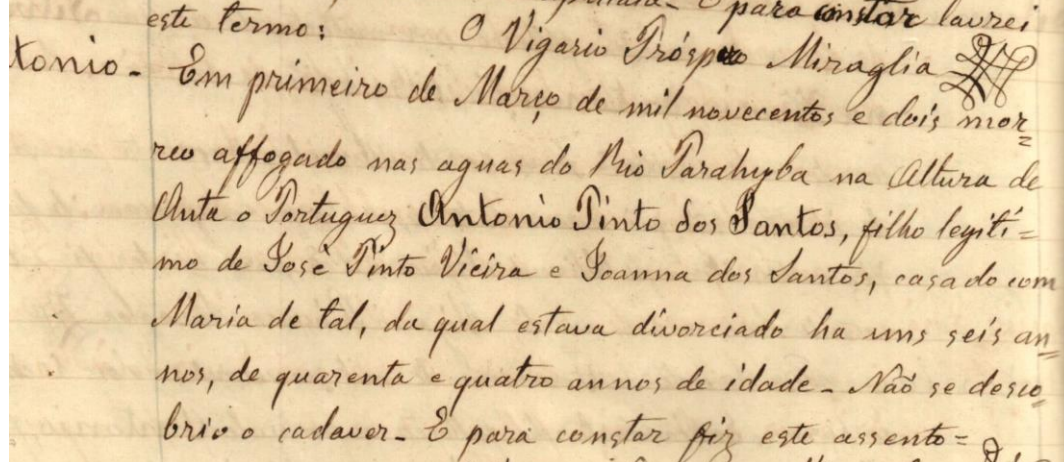 para constar lavrei
este termo: O Vigario Próspero Miraglia
tonio - Em primeiro de Março de mil novecentos e dois mor=
reo affogado nas aguas do Rio Parahyba na Altura de
Anta o Portuguez Antonio Pinto dos Santos, filho legiti=
mo de José Pinto Vieira e Joanna dos Santos, casado com
Maria de tal, da qual estava divorciado ha uns seis an=
nos, de quarenta e quatro annos de idade - Naõ se desco=
brio o cadaver - E para constar fiz este assento=